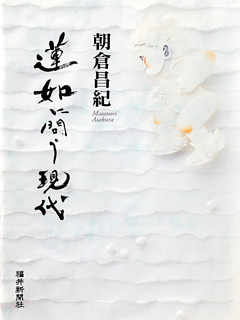 朝倉昌紀
Masanori
Asakura
蓮如に問う現代
福井新聞社